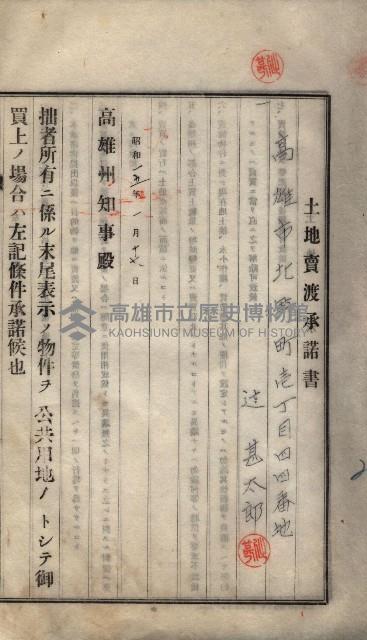 土地賣渡承諾書
高雄市北野町壱丁目四四番地
辻 甚太郎
昭和一五年一月十七日
高雄州知事殿
拙者所有ニ係ル末尾表示ノ物件ヲ 公共用地ノ トシテ御
買上ノ場合ハ左記條件承諾候也
高雄市立歷史博物館
KAOHSIUNG MUSEUM OF HISTORY